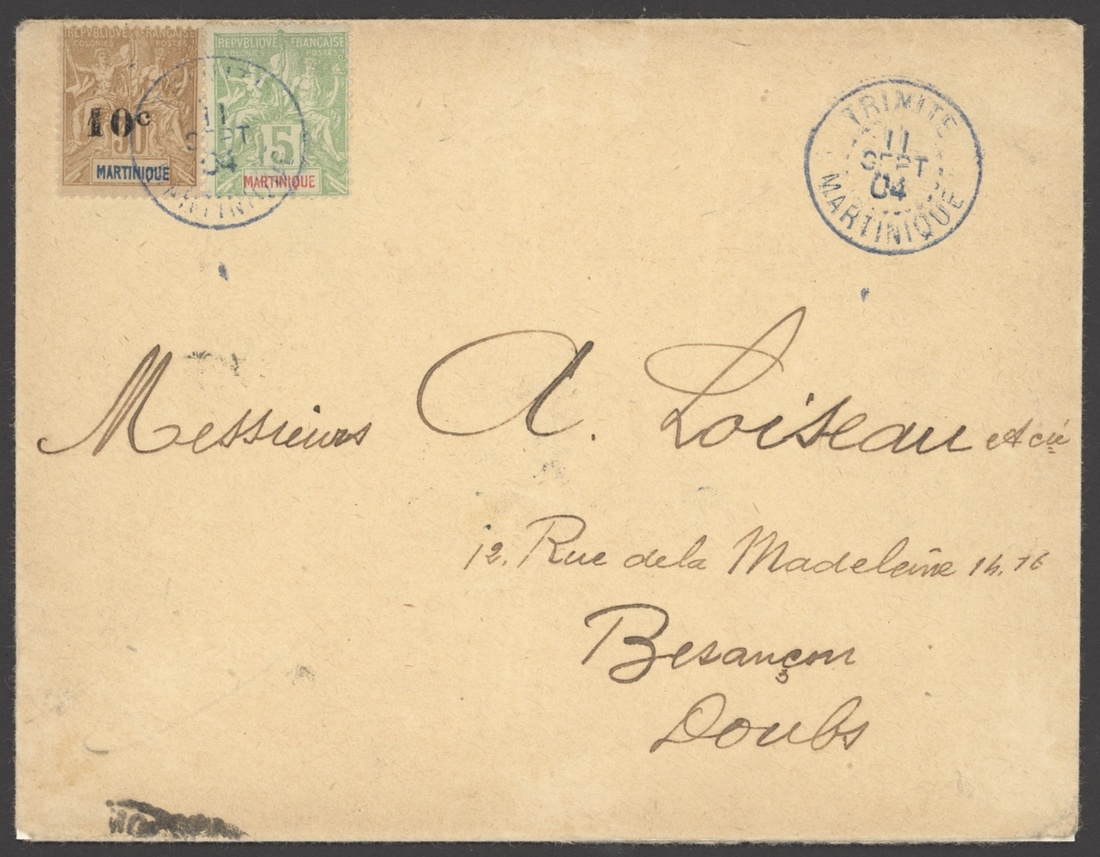 REPVBLIQVE FRANÇAISE
COLONIES POSTES
10c
MARTINIQUE
REPVBLIQVE FRANÇAISE
COLONIES POSTES
5
MARTINIQUE
11
SEPT
04
MARTINIQUE
TRIMITE
11
SEPT
04
MARTINIQUE
Messieurs A. Loiseau et Cie
12. Rue de la Madeleine 14. 16
Besançon
Doubs